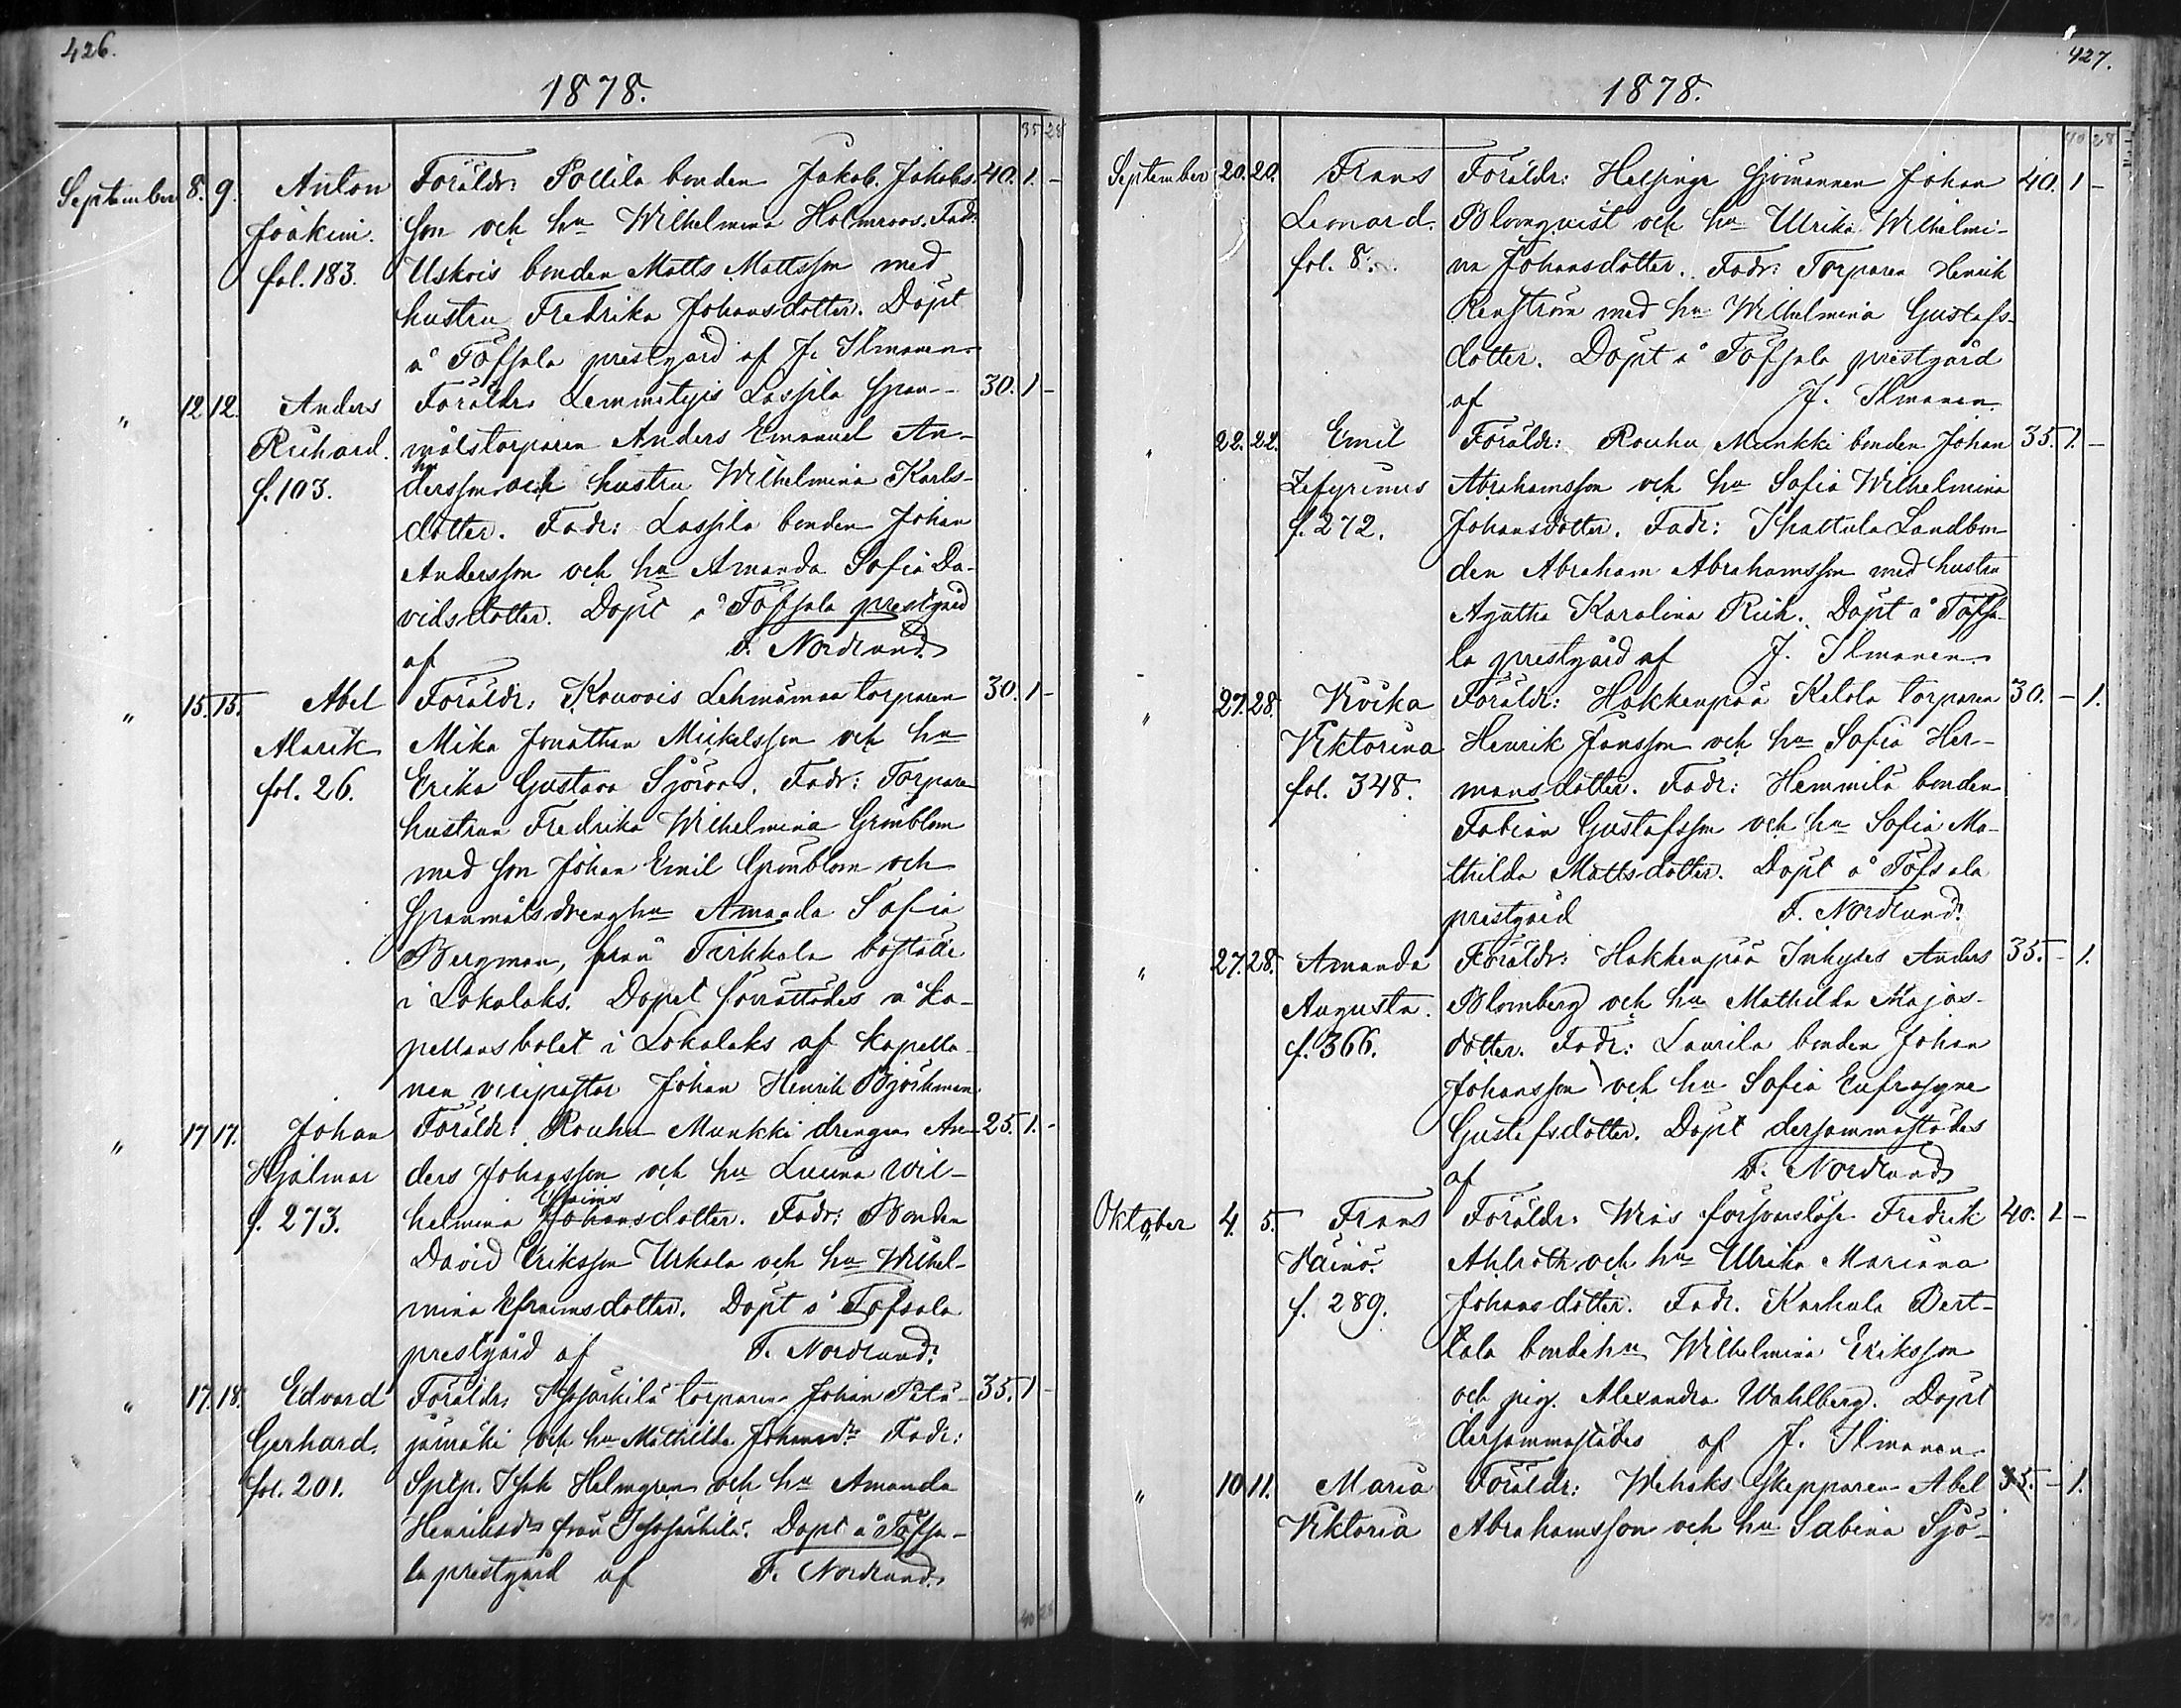 426.
1878.
35 28
September 8. 9. Anton Föräldr: Pollila bonden Jakob Jakobs- 40. 1. -
Joakim. son och hu Wilhelmina Holmroos. Fadr:
fol. 183. Uskois bonden Matts Mattsson med
hustru Fredrika Johansdotter. Döpt
å Töfsala prestgård af J. Ilmonen.
" 12 12. Anders Föräldr. Lemmetyis Lassila span- 30. 1 -
Richard. målstorparen Anders Emanuel An-
f. 103. dersson och hustru Wilhelmina Karls-
dotter. Fadr: Lassila bonden Johan
Andersson och hu Amanda Sofia Da-
vidsdotter. Döpt å Töfsala prestgård
af F. Nordlund.
" 15. 15. Abel Föräldr: Kouvois Lehmämaa torparen 30. 1 -
Alarik Mika Jonathan Mickelsson och hu
fol. 26. Erika Gustava Sjöroos. Fadr: Torpare
hustrun Fredrika Wilhelmina Grönblom
med son Johan Emil Grönblom och
spanmåls dreng hu Amanda Sofia
Bergman, från Tirkkala boställe
i Lokalaks. Dopet förrättades å ka-
pellansbolet i Lokalaks af kapella-
nen vicepastor Johan Henrik Björkman
" 17 17. Johan Föräldr: Rouhu Munkki drengen An- 25. 1. -
Hjalmar ders Johansson och hu Lucina Wil-
f. 273. helmina Johansdotter. Fadr: Bonden
David Eriksson Urkola och hu Wilhel-
mina Efraimsdotter. Döpt å Töfsala
prestgård af F. Nordlund.
" 17. 18. Edvard Föräldr. torparen Johan Pitä- 35. 1 -
Gerhard. jämäki och hu Mathilda Johansdr Fadr:
fol. 201. Sptp. Isak Helmgren och hu Amanda
Henriksdr från Döpt å Töfsa-
la prestgård af F. Nordlund.
40 28
427.
1878.
40 28
September 20. 20. Frans Föräldr: Helsinge sjömannen Johan 40. 1 -
Leonard. Blomqvist och hu Ulrika Wilhelmi-
fol. 8. na Johansdotter. Fadr: Torparen Henrik
Renström med hu Wilhelmina Gustafs-
dotter. Döpt å Töfsala prestgård
af J. Ilmonen.
" 22. 22. Emil Föräldr: Rouhu Munkki bonden Johan 35. 1. -
Zefyrinus Abrahamsson och hu Sofia Wilhelmina
f. 272. Johansdotter. Fadr: Ihattula Landbon-
den Abraham Abrahamsson med hustru
Agatha Karolina Rick. Döpt å Töfsa-
la prestgård af J. Ilmonen.
" 27. 28. Viktorina Föräldr: Hakkenpää Ketola torparen 30. - 1.
fol. 348. Henrik Jansson och hu Sofia Her-
mansdotter. Fadr: Hemmilä bonden
Fabian Gustafsson och hu Sofia Ma-
thilda Mattsdotter. Döpt å Töfsala
prestgård F. Nordlund.
" 27. 28. Amanda Föräldr: Hakkenpää Inhyses Anders 35. - 1.
Augusta. Blomberg och hu Mathilda Majas-
f. 366. dotter. Fadr: Laurila bonden Johan
Johansson och hu Sofia Eufrosyne
Gustafsdotter. Döpt dersammastädes
af F. Nordlund
Oktober 4. 5. Frans Föräldr. Wiäs försvarslöse Fredrik 40. 1 -
Wäinö. Ahlroth och hu Ulrika Mariana
f. 289. Johansdotter. Fadr. Karhula Bert-
tala bondehu Wilhelmina Eriksson
och pig. Alexandra Wahlberg. Döpt
dersammastädes af J. Ilmonen.
" 10 11. Maria Föräldr: Wehaks skepparen Abel 35. - 1.
Viktoria Abrahamsson och hu Sabina Sjö-